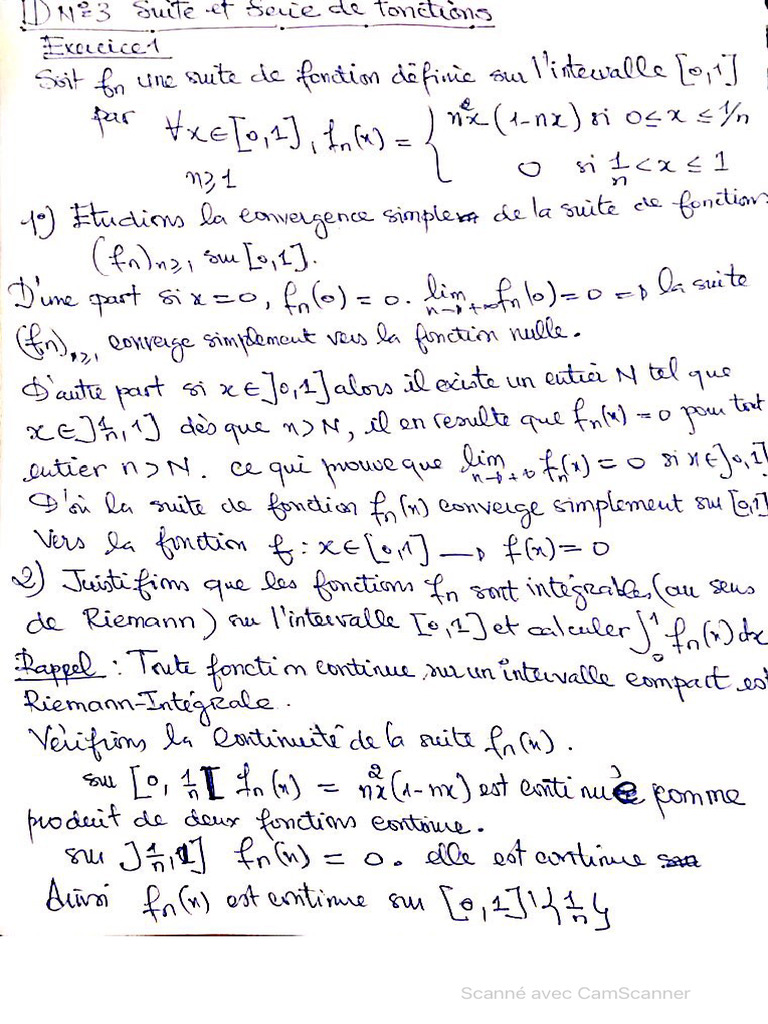 TD N°3 Suite et Serie de fonctions
Exercice 1
Soit fn une suite de fonction définie sur l'intervalle [0,1]
par ∀x∈[0,1], fn(x) = { n²x(1-nx) si 0≤x≤1/n
n≥1 0 si 1/n<x≤1
1°) Etudions la convergence simple de la suite de fonction
(fn)n≥1 sur [0,1].
D'une part si x=0, fn(0)=0. lim n→+∞ fn(0)=0 ⇒ la suite
(fn)n≥1 converge simplement vers la fonction nulle.
D'autre part si x∈]0,1] alors il existe un entier N tel que
x∈]1/n,1] dès que n>N, il en resulte que fn(x)=0 pour tout
entier n>N. ce qui prouve que lim n→+∞ fn(x)=0 si x∈]0,1]
D'où la suite de fonction fn(x) converge simplement sur [0,1]
Vers la fonction f: x∈[0,1] → f(x)=0
2) Justifions que les fonctions fn sont intégrables (au sens
de Riemann) sur l'intervalle [0,1] et calculer ∫₀¹ fn(x)dx
Rappel : Toute fonction continue sur un intervalle compact est
Riemann-Intégrale.
Vérifions la Continuité de la suite fn(x).
sur [0, 1/n[ fn(x) = n²x(1-nx) est continue comme
produit de deux fonctions continue.
sur ]1/n,1] fn(x) = 0. elle est continue
Ainsi fn(x) est continue sur [0,1]\{1/n}
Scanné avec CamScanner